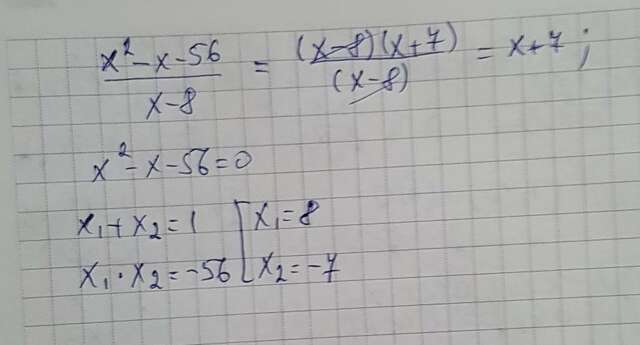 (x² - x - 56)/(x - 8) = ((x-8)(x+7))/(x-8) = x+7;
x² - x - 56 = 0
x₁ + x₂ = 1 [x₁ = 8
x₁ · x₂ = -56 [x₂ = -7